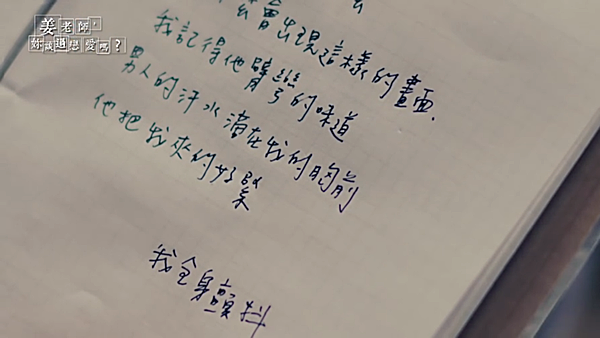 姜老師，
妳談過戀愛嗎？
會出現這樣的畫面.
我記得他臂彎的味道
男人的汗水滴在我的胸前
他把我夾的好緊
我全身顫抖